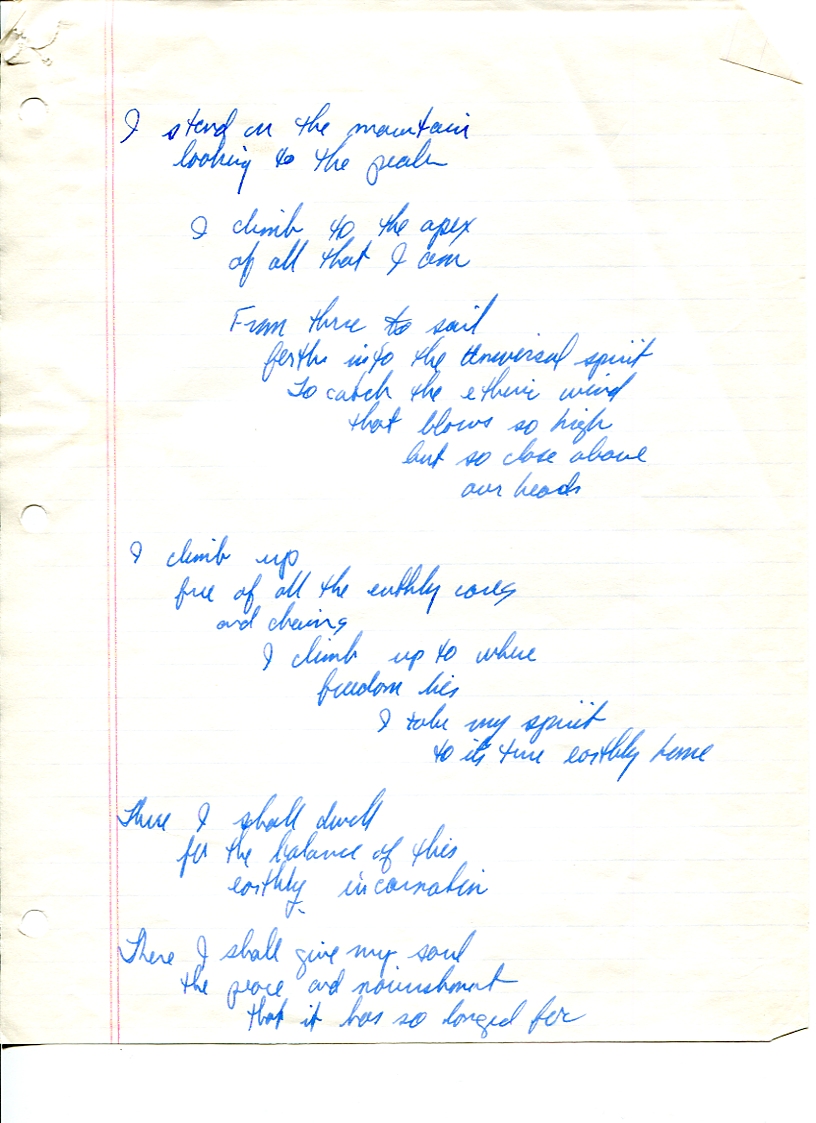 I stand on the mountain
looking to the peak
I climb to the apex
of all that I am
From there to sail
forth into the Universal spirit
To catch the etheric wind
that blows so high
but so close above
our heads
I climb up
free of all the earthly cares
and chains
I climb up to where
freedom lies
I take my spirit
to it's true earthly home
There I shall dwell
for the balance of this
earthly incarnation
There I shall give my soul
the peace and nourishment
that it has so longed for